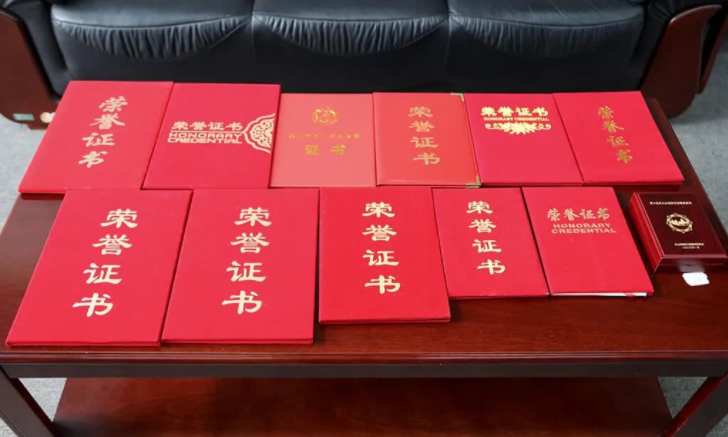 荣誉证书
荣誉证书
HONORARY
CREDENTIAL
证书
荣誉证书
荣誉证书
HONORARY CREDENTIAL
荣誉证书
荣誉证书
荣誉证书
荣誉证书
荣誉证书
荣誉证书
HONORARY
CREDENTIAL